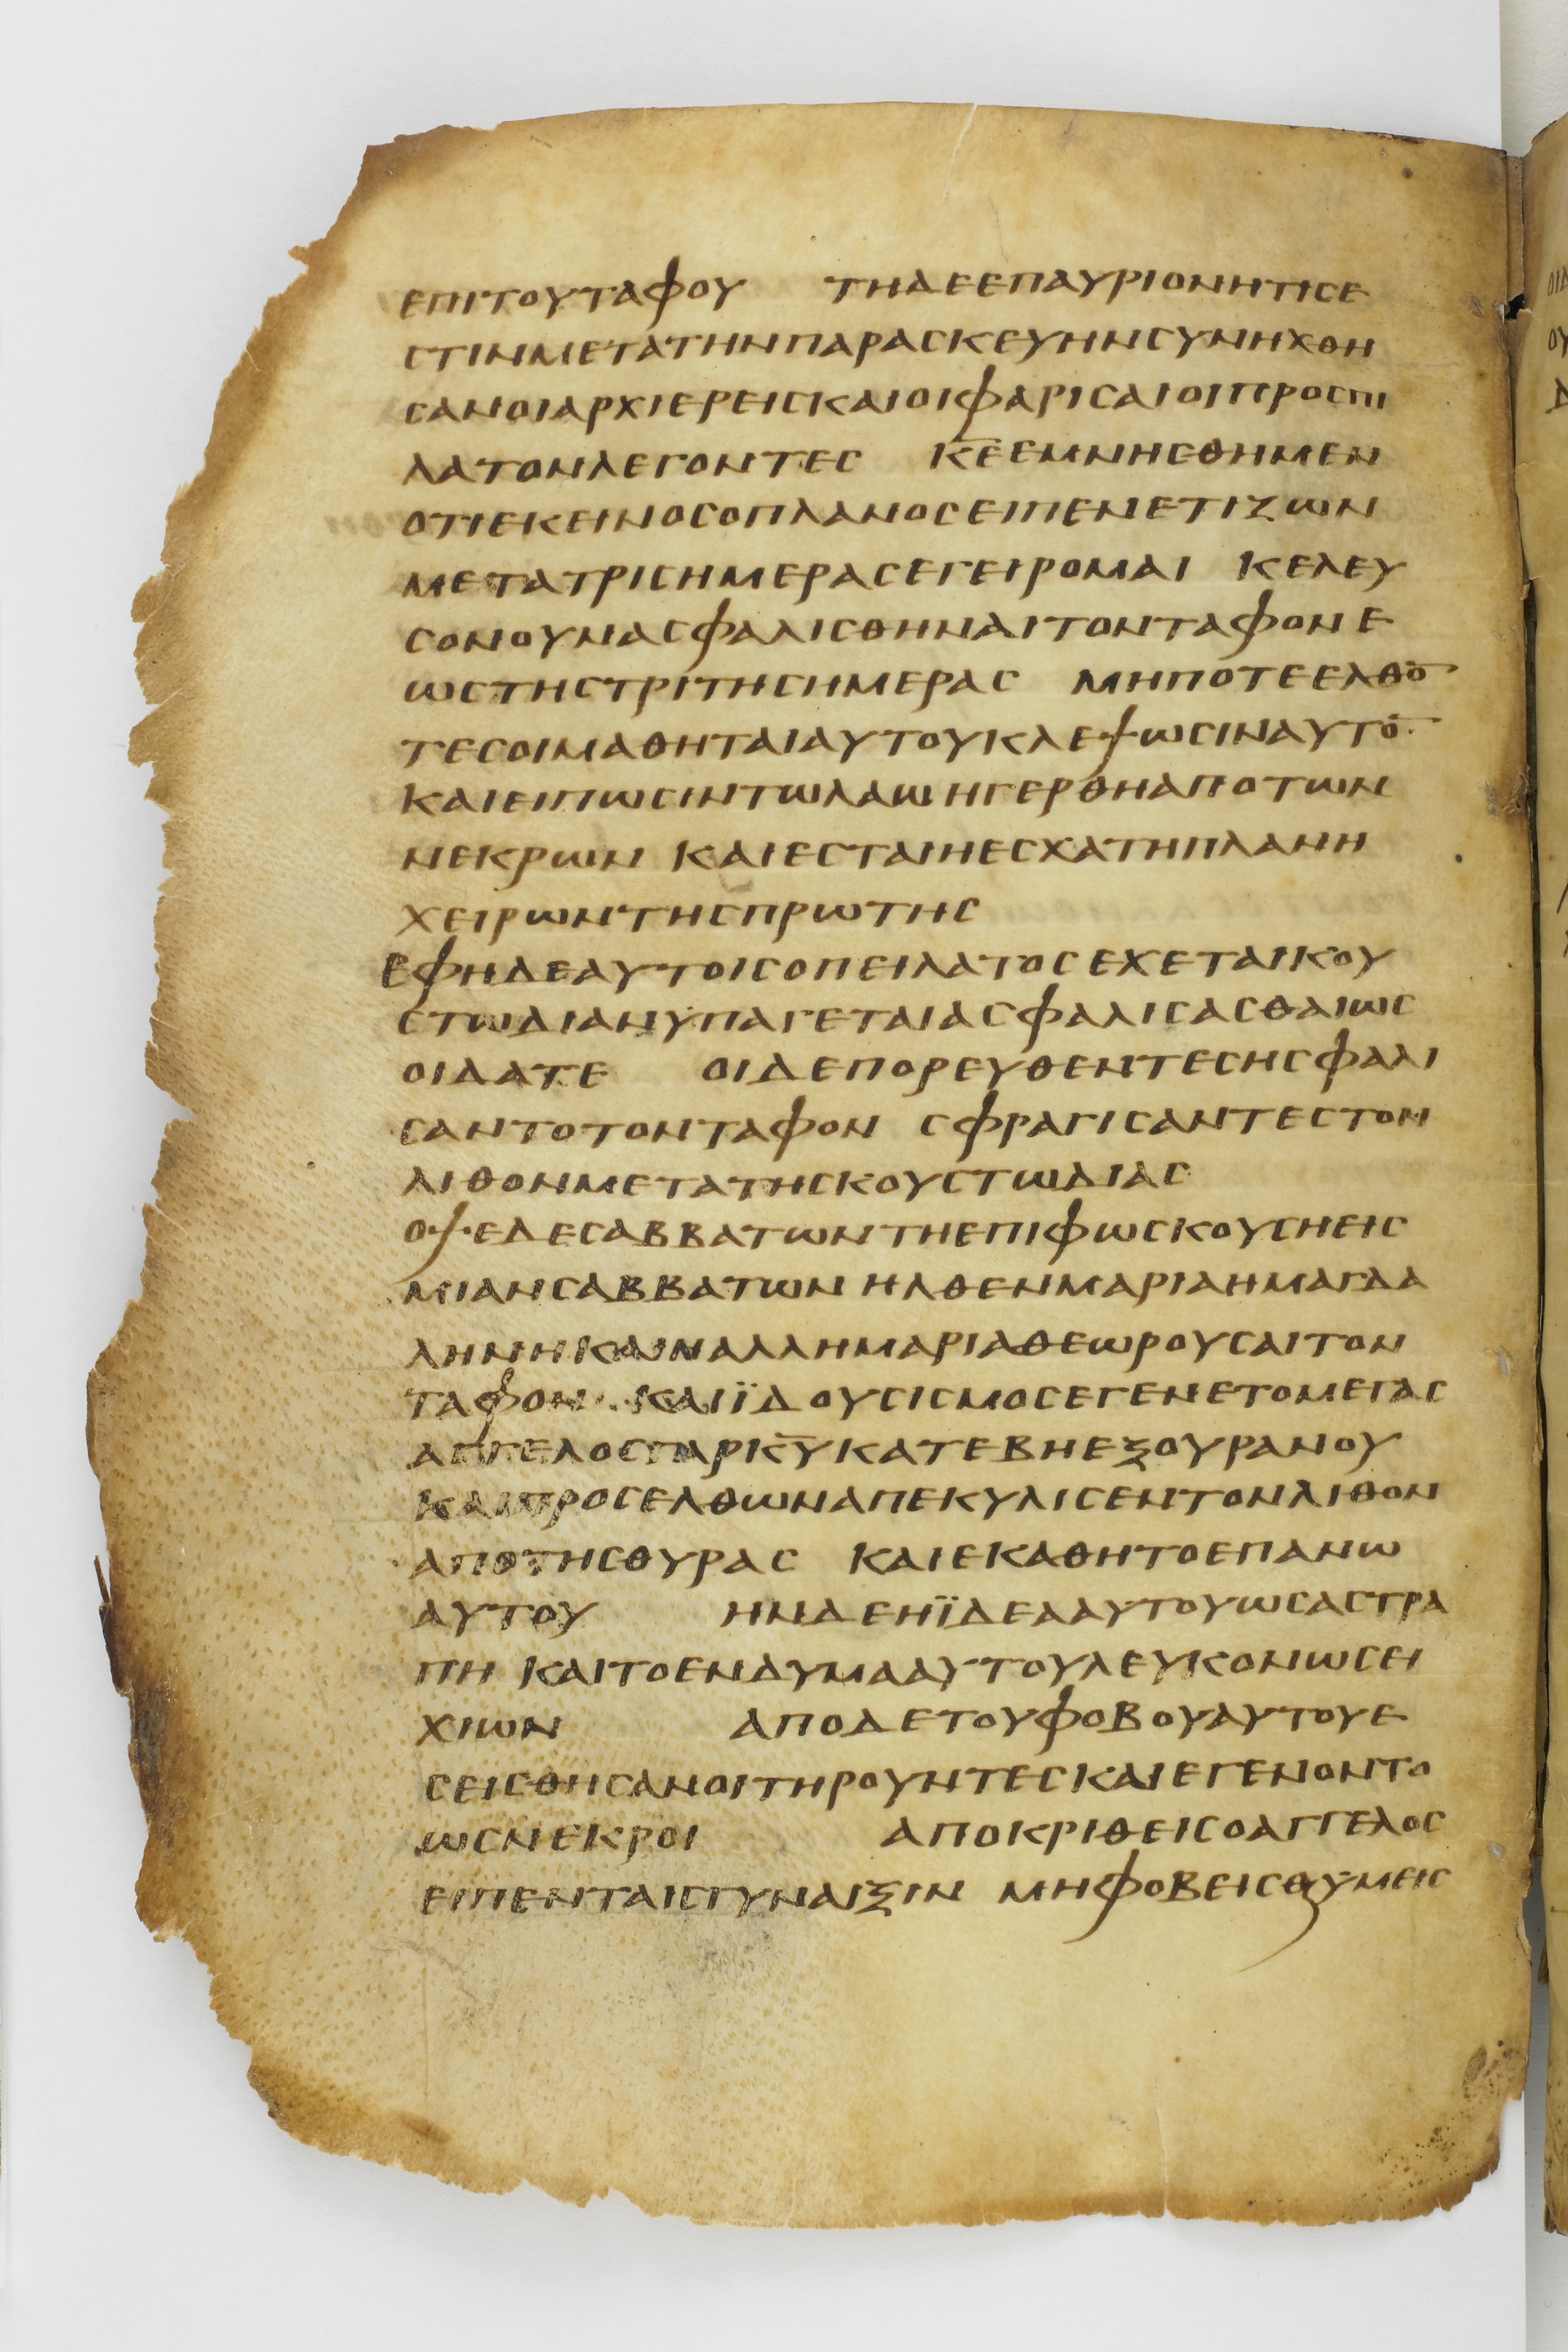 ΕΠΙΤΟΥΤΑΦΟΥ ΤΗΔΕΕΠΑΥΡΙΟΝΗΤΙϹΕ
ϹΤΙΝΜΕΤΑΤΗΝΠΑΡΑϹΚΕΥΗΝϹΥΝΗΧΘΗ
ϹΑΝΟΙΑΡΧΙΕΡΕΙϹΚΑΙΟΙΦΑΡΙϹΑΙΟΙΠΡΟϹΠΙ
ΛΑΤΟΝΛΕΓΟΝΤΕϹ Κ̅Ε̅ΕΜΝΗϹΘΗΜΕΝ
ΟΤΙΕΚΕΙΝΟϹΟΠΛΑΝΟϹΕΙΠΕΝΕΤΙΖΩΝ
ΜΕΤΑΤΡΙϹΗΜΕΡΑϹΕΓΕΙΡΟΜΑΙ ΚΕΛΕΥ
ϹΟΝΟΥΝΑϹΦΑΛΙϹΘΗΝΑΙΤΟΝΤΑΦΟΝΕ
ΩϹΤΗϹΤΡΙΤΗϹΗΜΕΡΑϹ ΜΗΠΟΤΕΕΛΘΟ̅
ΤΕϹΟΙΜΑΘΗΤΑΙΑΥΤΟΥΚΛΕΨΩϹΙΝΑΥΤΟ̅
ΚΑΙΕΙΠΩϹΙΝΤΩΛΑΩΗΓΕΡΘΗΑΠΟΤΩΝ
ΝΕΚΡΩΝ ΚΑΙΕϹΤΑΙΗΕϹΧΑΤΗΠΛΑΝΗ
ΧΕΙΡΩΝΤΗϹΠΡΩΤΗϹ
ΕΦΗΔΕΑΥΤΟΙϹΟΠΕΙΛΑΤΟϹΕΧΕΤΑΙΚΟΥ
ϹΤΩΔΙΑΝΥΠΑΓΕΤΑΙΑϹΦΑΛΙϹΑϹΘΑΙΩϹ
ΟΙΔΑΤΕ ΟΙΔΕΠΟΡΕΥΘΕΝΤΕϹΗϹΦΑΛΙ
ϹΑΝΤΟΤΟΝΤΑΦΟΝ ϹΦΡΑΓΙϹΑΝΤΕϹΤΟΝ
ΛΙΘΟΝΜΕΤΑΤΗϹΚΟΥϹΤΩΔΙΑϹ
ΟΨΕΔΕϹΑΒΒΑΤΩΝΤΗΕΠΙΦΩϹΚΟΥϹΗΕΙϹ
ΜΙΑΝϹΑΒΒΑΤΩΝ ΗΛΘΕΝΜΑΡΙΑΗΜΑΓΔΑ
ΛΗΝΗΚΑΙΗΑΛΛΗΜΑΡΙΑΘΕΩΡΟΥϹΑΙΤΟΝ
ΤΑΦΟΝ ΚΑΙΪΔΟΥϹΙϹΜΟϹΕΓΕΝΕΤΟΜΕΓΑϹ
ΑΓΓΕΛΟϹΓΑΡΚ̅Υ̅ΚΑΤΕΒΗΕΞΟΥΡΑΝΟΥ
ΚΑΙΠΡΟϹΕΛΘΩΝΑΠΕΚΥΛΙϹΕΝΤΟΝΛΙΘΟΝ
ΑΠΟΤΗϹΘΥΡΑϹ ΚΑΙΕΚΑΘΗΤΟΕΠΑΝΩ
ΑΥΤΟΥ ΗΝΔΕΗΪΔΕΑΑΥΤΟΥΩϹΑϹΤΡΑ
ΠΗ ΚΑΙΤΟΕΝΔΥΜΑΑΥΤΟΥΛΕΥΚΟΝΩϹΕΙ
ΧΙΩΝ ΑΠΟΔΕΤΟΥΦΟΒΟΥΑΥΤΟΥΕ
ϹΕΙϹΘΗϹΑΝΟΙΤΗΡΟΥΝΤΕϹΚΑΙΕΓΕΝΟΝΤΟ
ΩϹΝΕΚΡΟΙ ΑΠΟΚΡΙΘΕΙϹΟΑΓΓΕΛΟϹ
ΕΙΠΕΝΤΑΙϹΓΥΝΑΙΞΙΝ ΜΗΦΟΒΕΙϹΘΥΜΕΙϹ